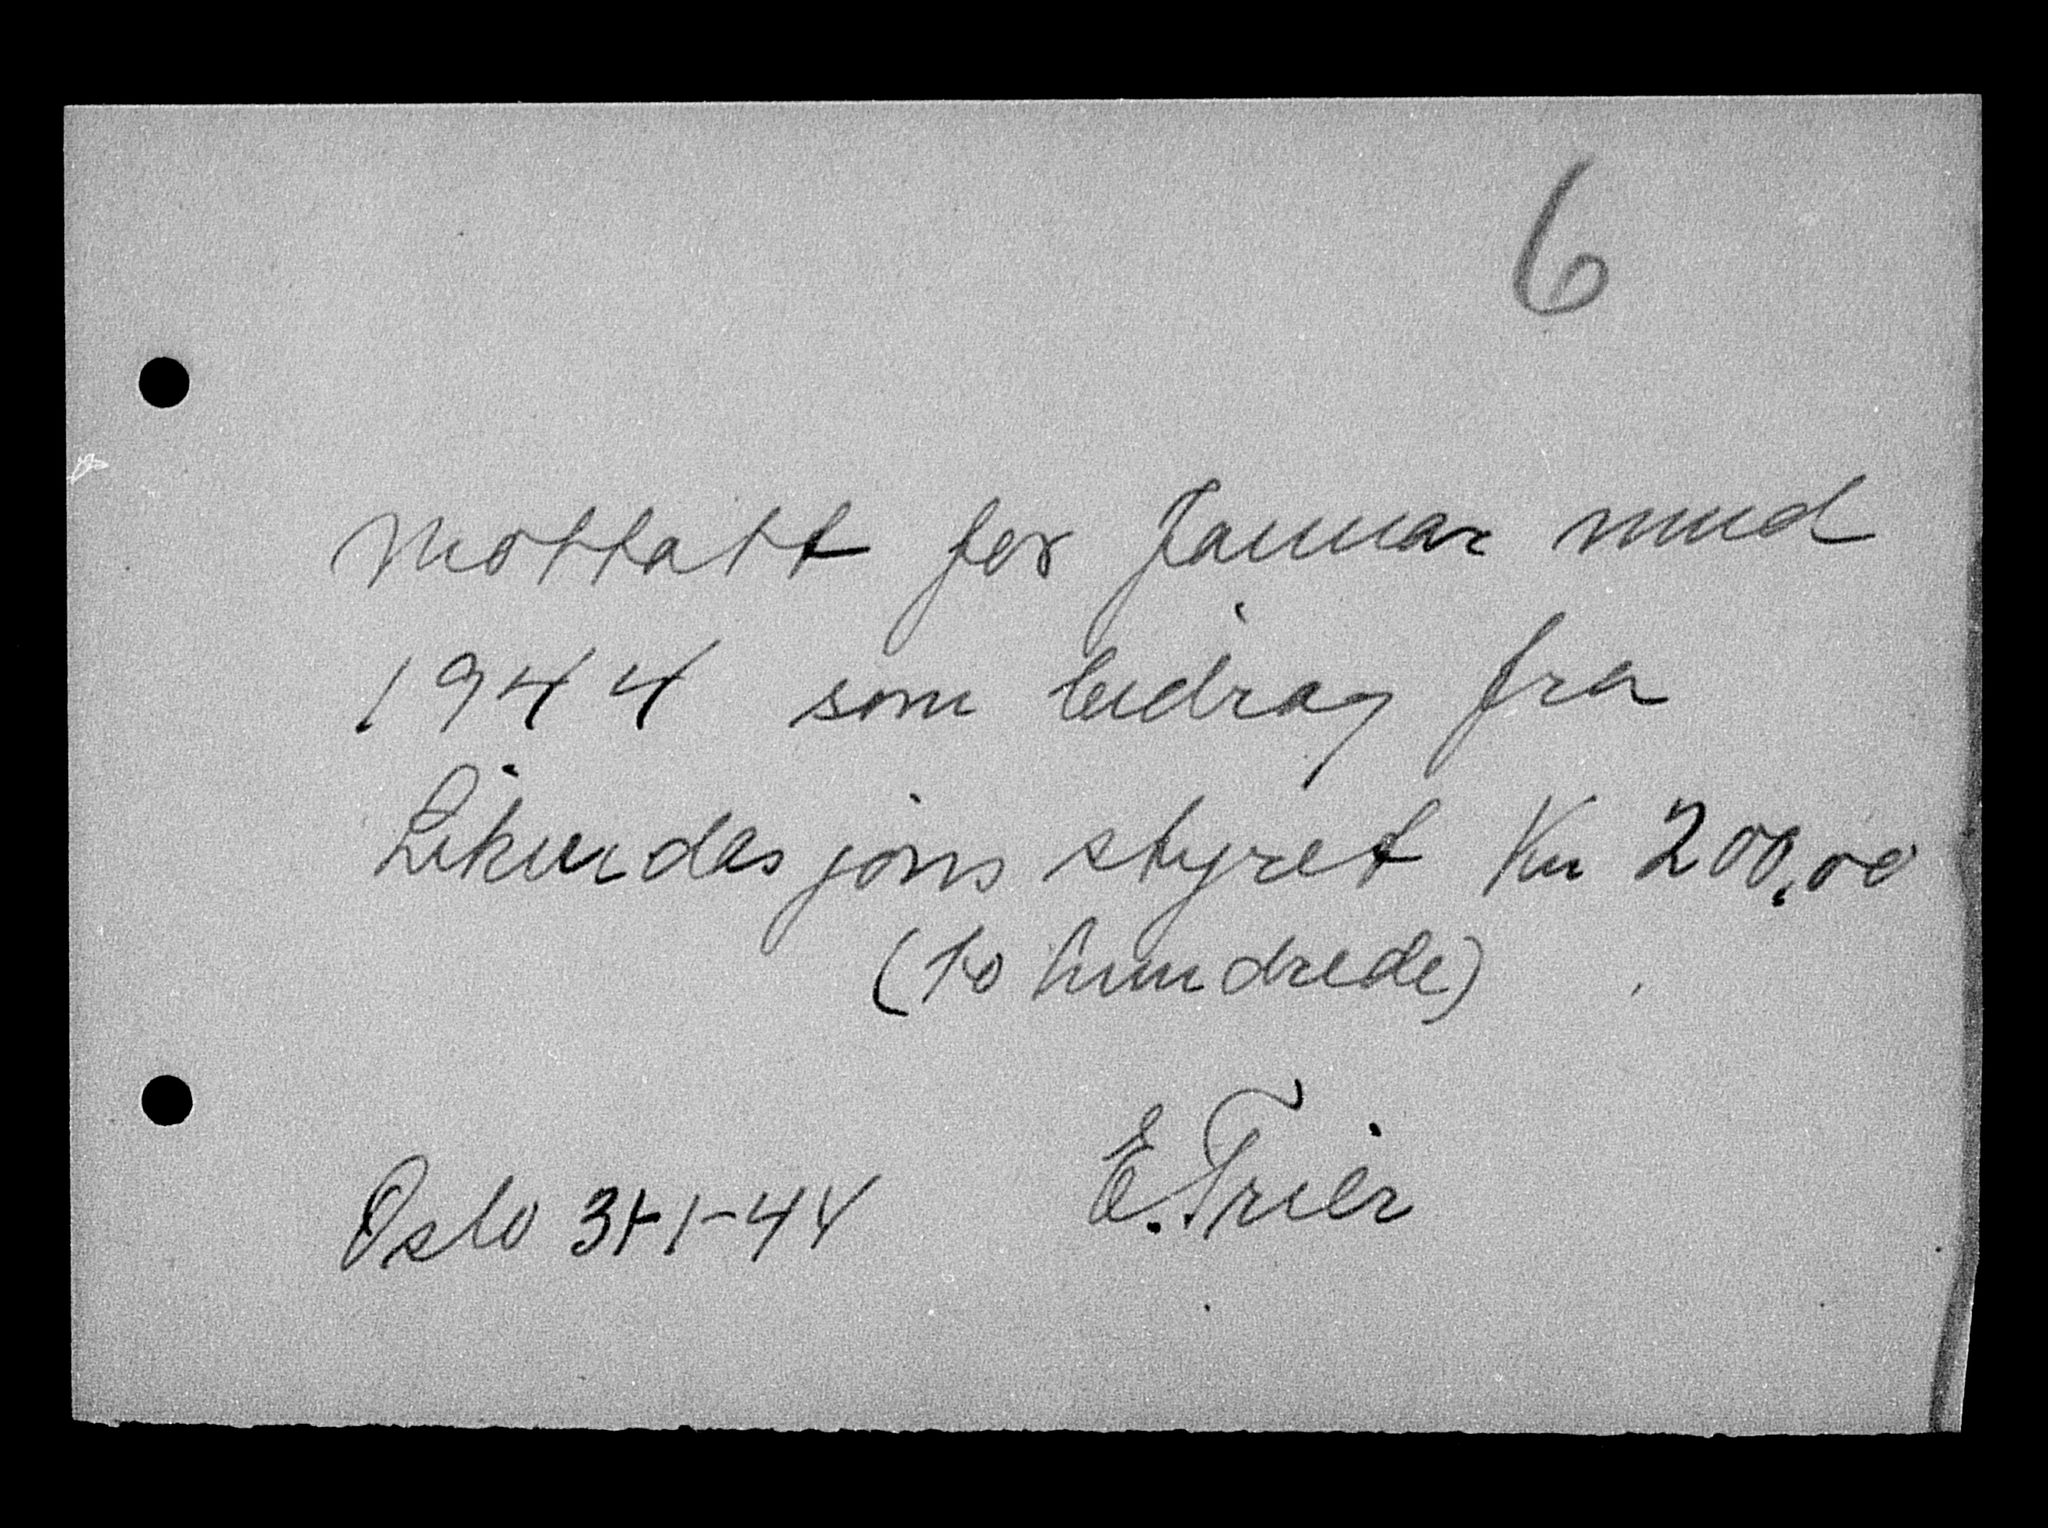 6
Mottatt for Januar mnd
1944 som bidrag fra
Likvidasjons styret Kr 200,00
(to hundrede)
E. Trier
Oslo 31-1-44